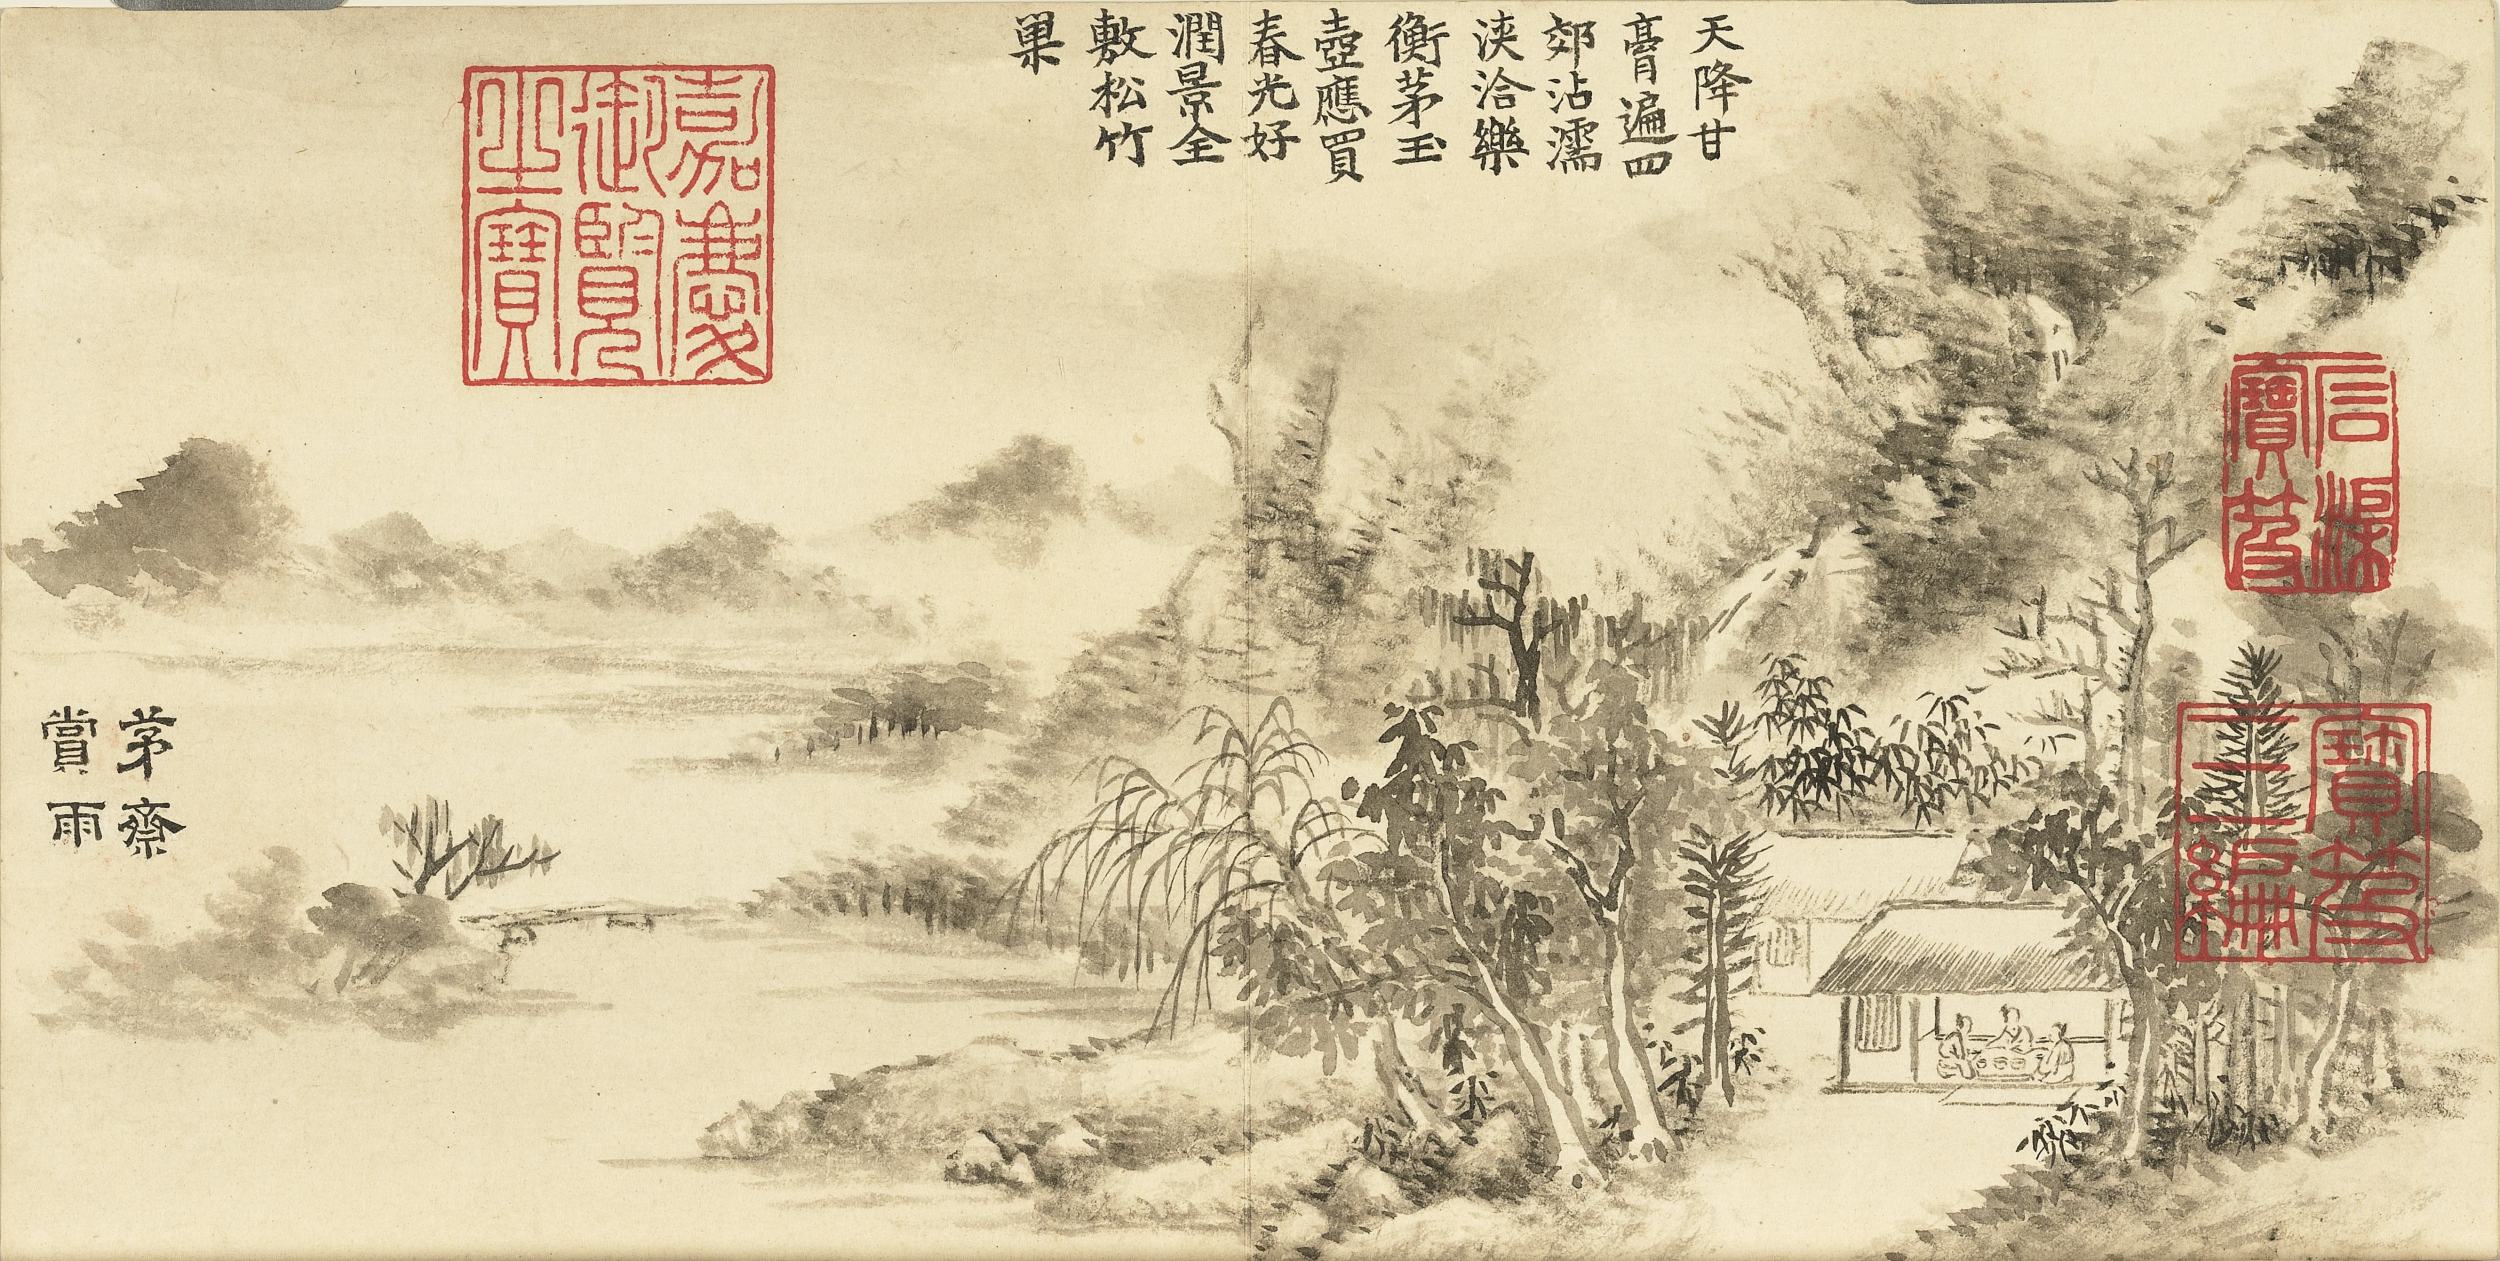 天降甘
膏遍四
郊沾濡
浹洽樂
衡茅玉
壺應買
春光好
潤景全
敷松竹
巢
茅齋
賞雨
嘉慶
御覽
之寶
寶笈
三編